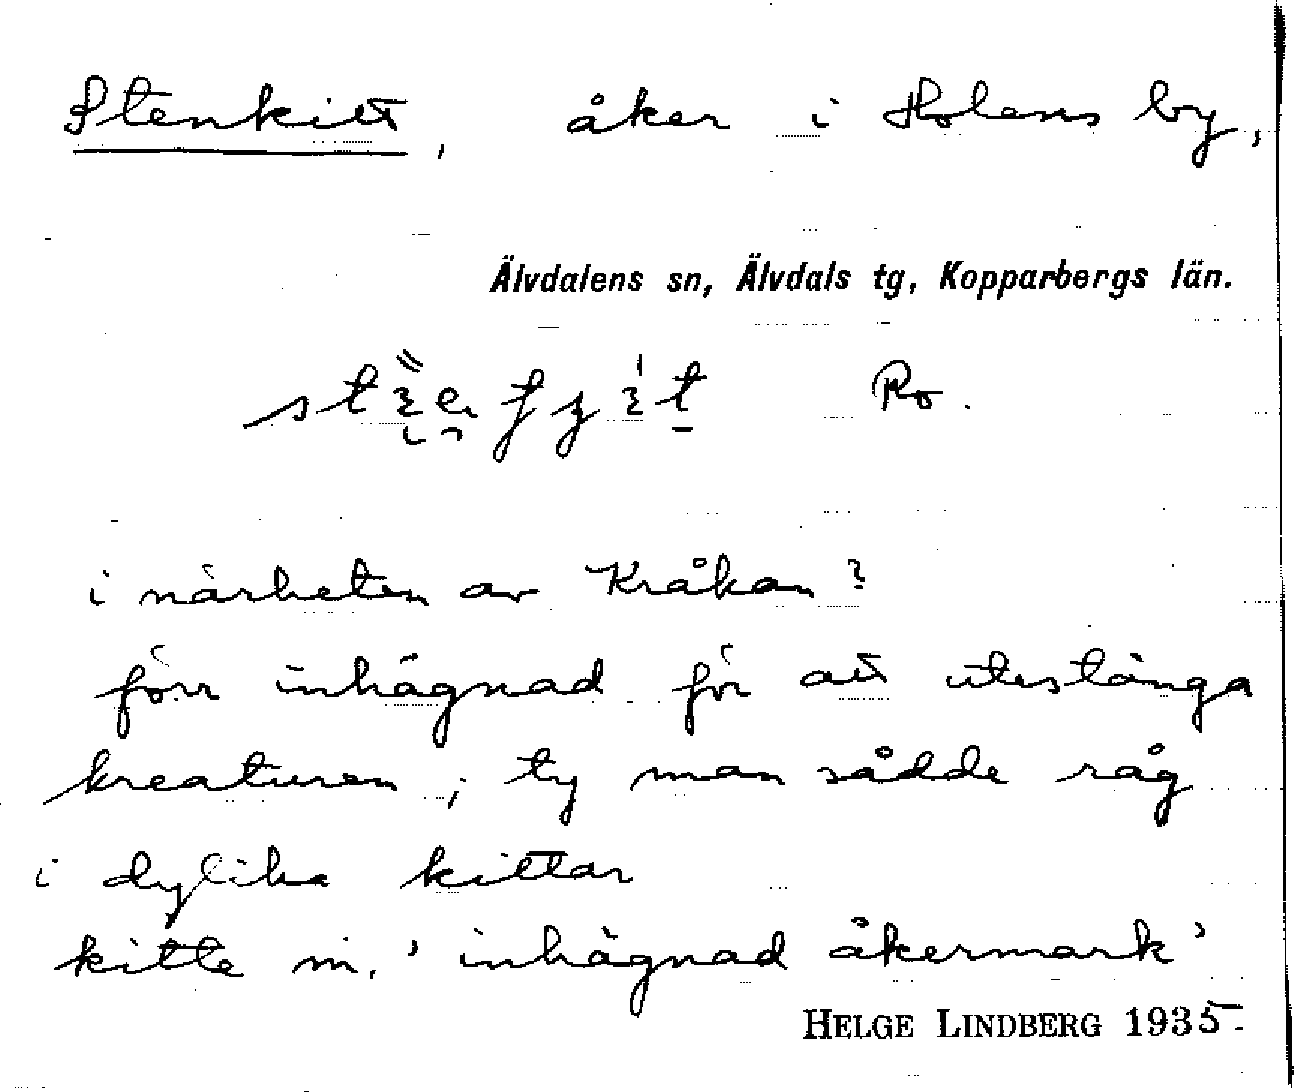 Stenkitt, åker i Holens by,
Älvdalens sn, Älvdals tg, Kopparbergs län.
Ro.
i närheten av Kråkan?
förr inhägnad för att utestänga
kreaturen; ty man sådde råg
i dylika kittar
kitte m. 'inhägnad åkermark'
HELGE LINDBERG 1935